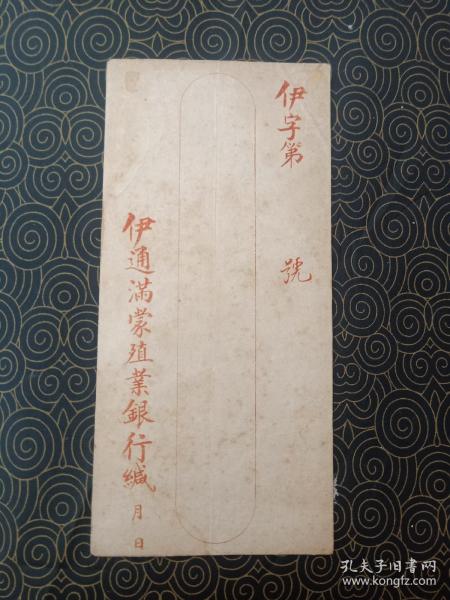 伊字第 號
伊通滿蒙殖業銀行緘
月 日
孔夫子旧书网
www.kongfz.com